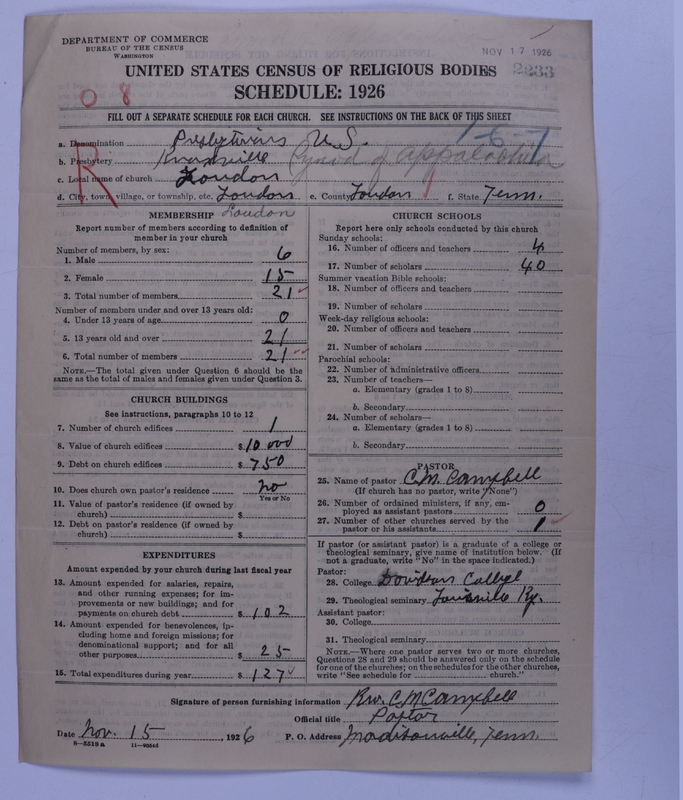 DEPARTMENT OF COMMERCE
BUREAU OF THE CENSUS
WASHINGTON
NOV 17 1926
2233
UNITED STATES CENSUS OF RELIGIOUS BODIES
SCHEDULE: 1926
O 8
FILL OUT A SEPARATE SCHEDULE FOR EACH CHURCH. SEE INSTRUCTIONS ON THE BACK OF THIS SHEET
R
1-6-1
a. Denomination U.S.
b. Presbytery Knoxville Synod of Appalachia
c. Local name of church Loudon
d. City, town, village, or township, etc. Loudon e. County Loudon f. State Tenn.
Loudon
MEMBERSHIP
Report number of members according to definition of
member in your church
Number of members, by sex:
1. Male 6
2. Female 15
3. Total number of members 21
Number of members under and over 13 years old:
4. Under 13 years of age 0
5. 13 years old and over 21
6. Total number of members 21
NOTE.—The total given under Question 6 should be
same as the total of males and females given under Question 3.
CHURCH BUILDINGS
See instructions, paragraphs 10 to 12
7. Number of church edifices 1
8. Value of church edifices $10000
9. Debt on church edifices $750
10. Does church own pastor's residence no
Yes or No
11. Value of pastor's residence (if owned by
church) $
12. Debt on pastor's residence (if owned by
church) $
EXPENDITURES
Amount expended by your church during last fiscal year
13. Amount expended for salaries, repairs,
and other running expenses; for im-
provements or new buildings; and for
payments on church debt $102
14. Amount expended for benevolences, in-
cluding home and foreign missions; for
denominational support; and for all
other purposes $25
15. Total expenditures during year $127
CHURCH SCHOOLS
Report here only schools conducted by this church
Sunday schools:
16. Number of officers and teachers 4
17. Number of scholars 40
Summer vacation Bible schools:
18. Number of officers and teachers
19. Number of scholars
Week-day religious schools:
20. Number of officers and teachers
21. Number of scholars
Parochial schools:
22. Number of administrative officers
23. Number of teachers—
a. Elementary (grades 1 to 8)
b. Secondary
24. Number of scholars—
a. Elementary (grades 1 to 8)
b. Secondary
PASTOR
25. Name of pastor C.M. Campbell
(If church has no pastor, write "None")
26. Number of ordained ministers, if any, em-
ployed as assistant pastors 0
27. Number of other churches served by the
pastor or his assistants 1
If pastor (or assistant pastor) is a graduate of a college or
theological seminary, give name of institution below. (If
not a graduate, write "No" in the space indicated.)
Pastor:
28. College Davidson College
29. Theological seminary Louisville Ky.
Assistant pastor:
30. College
31. Theological seminary
NOTE.—Where one pastor serves two or more churches,
Questions 28 and 29 should be answered only on the schedule
for one of the churches; on the schedules for the other churches,
write "See schedule for church."
Signature of person furnishing information Rev. C M Campbell
Official title Pastor
Date Nov. 15, 1926 P. O. Address Madisonville, Tenn.
8-5518a 11-9054d